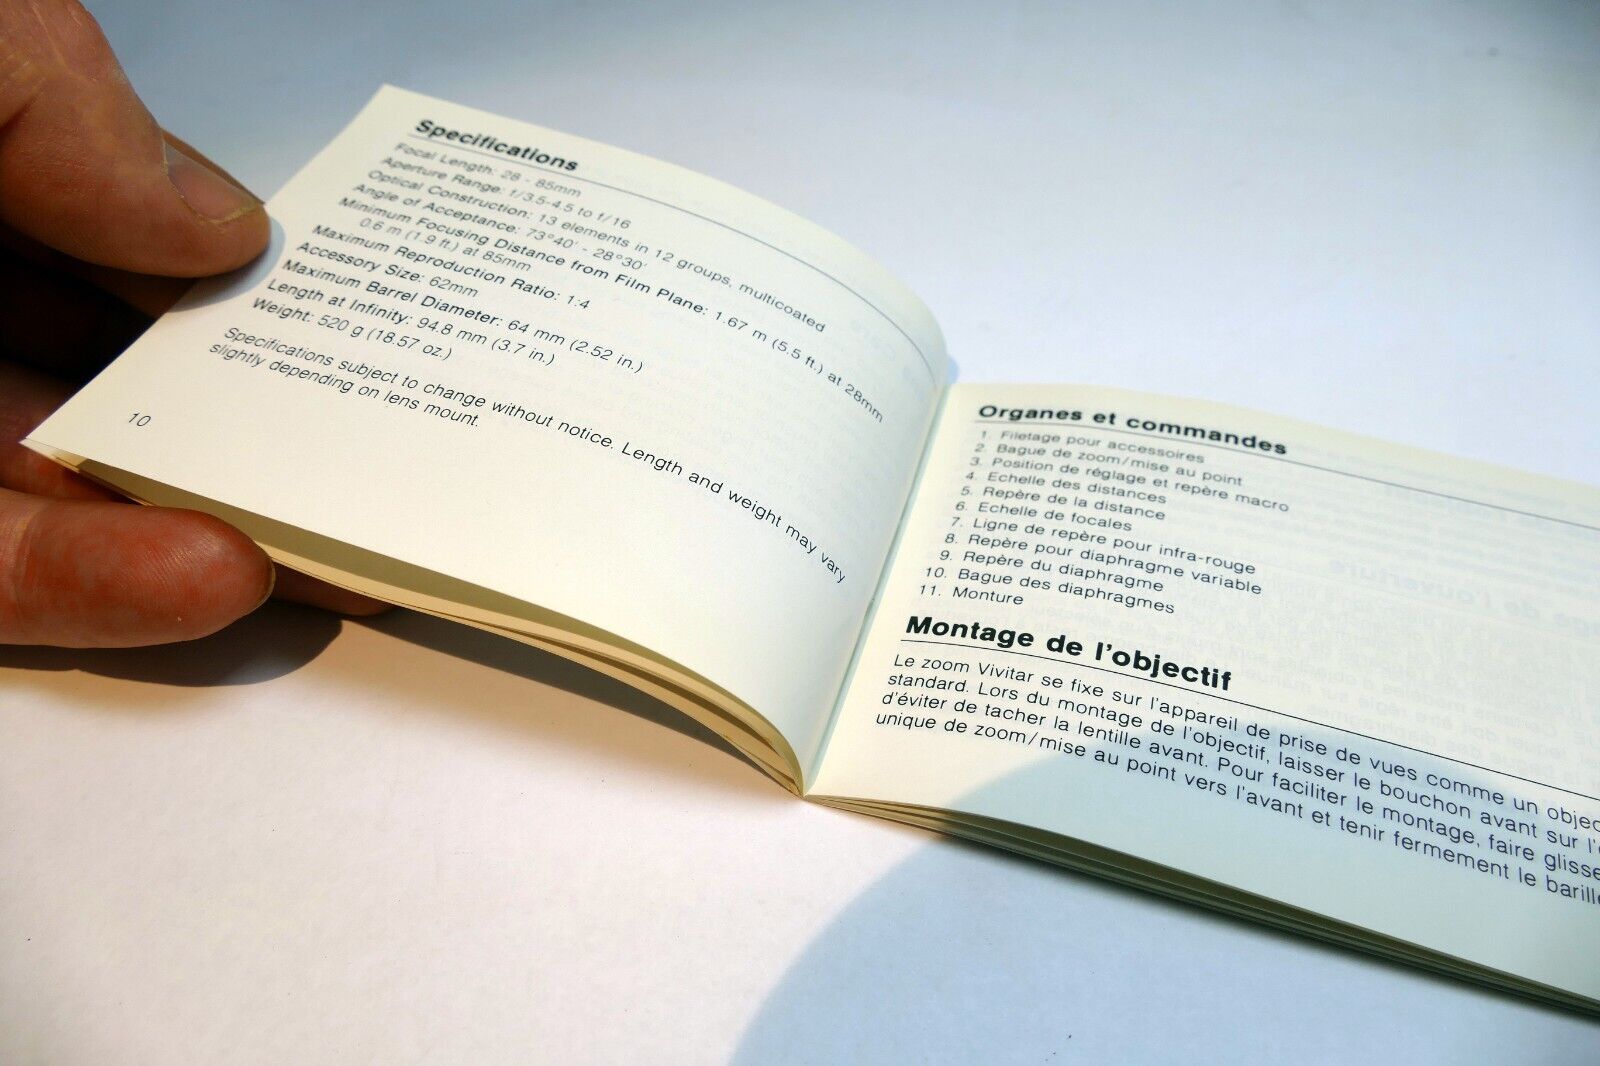 Specifications
Focal Length: 28 - 85mm
Aperture Range: f/3.5-4.5 to f/16
Optical Construction: 13 elements in 12 groups, multicoated
Angle of Acceptance: 73°40′ - 28°30′
Minimum Focusing Distance from Film Plane: 1.67 m (5.5 ft.) at 28mm
0.6 m (1.9 ft.) at 85mm
Maximum Reproduction Ratio: 1:4
Accessory Size: 62mm
Maximum Barrel Diameter: 64 mm (2.52 in.)
Length at Infinity: 94.8 mm (3.7 in.)
Weight: 520 g (18.57 oz.)
Specifications subject to change without notice. Length and weight may vary
slightly depending on lens mount.
10
Organes et commandes
1. Filetage pour accessoires
2. Bague de zoom/mise au point
3. Position de réglage et repère macro
4. Echelle des distances
5. Repère de la distance
6. Echelle de focales
7. Ligne de repère pour infra-rouge
8. Repère pour diaphragme variable
9. Repère du diaphragme
10. Bague des diaphragmes
11. Monture
Montage de l'objectif
Le zoom Vivitar se fixe sur l'appareil de prise de vues comme un objec
standard. Lors du montage de l'objectif, laisser le bouchon avant sur l'
d'éviter de tacher la lentille avant. Pour faciliter le montage, faire glisse
unique de zoom/mise au point vers l'avant et tenir fermement le barill